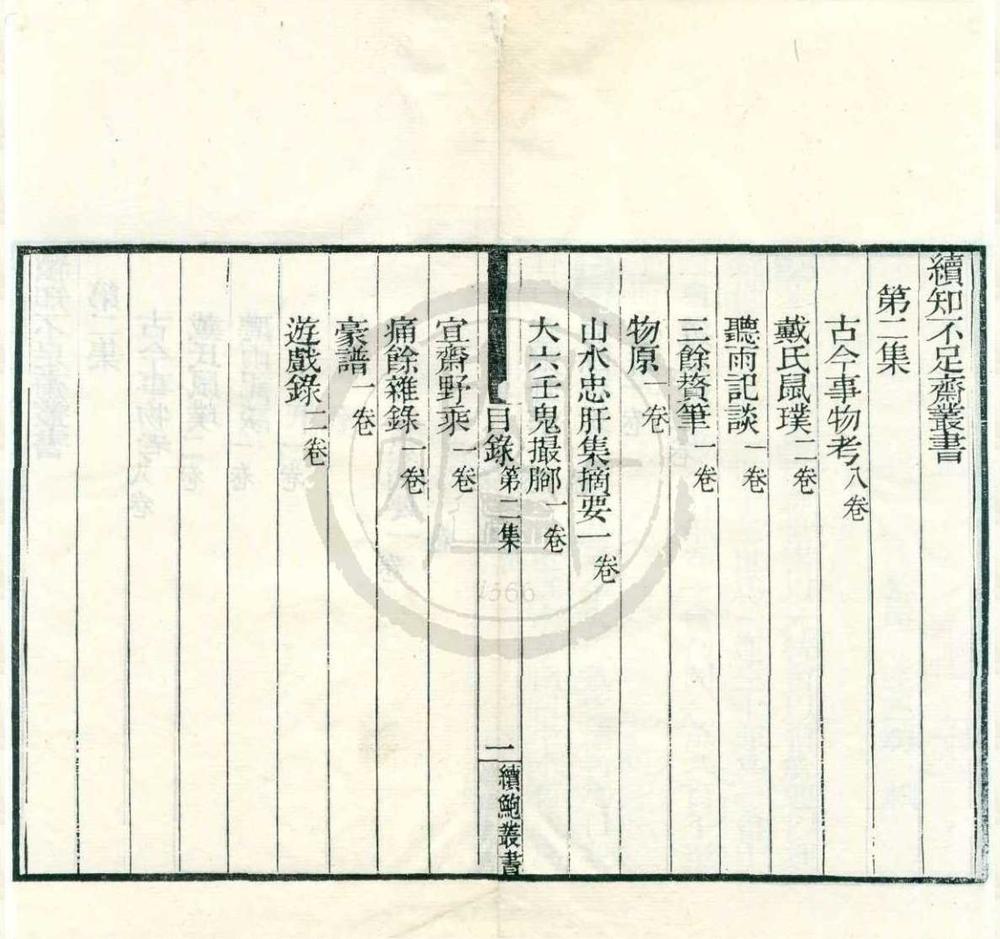 續知不足齋叢書
第二集
古今事物考八卷
戴氏鼠璞二卷
聽雨記談一卷
三餘贅筆一卷
物原一卷
山水忠肝集摘要一卷
大六壬鬼撮腳一卷
目錄 第二集
一
續鮑叢書
宜齋野乘一卷
痛餘雜錄一卷
豪譜一卷
遊戲錄二卷
1566